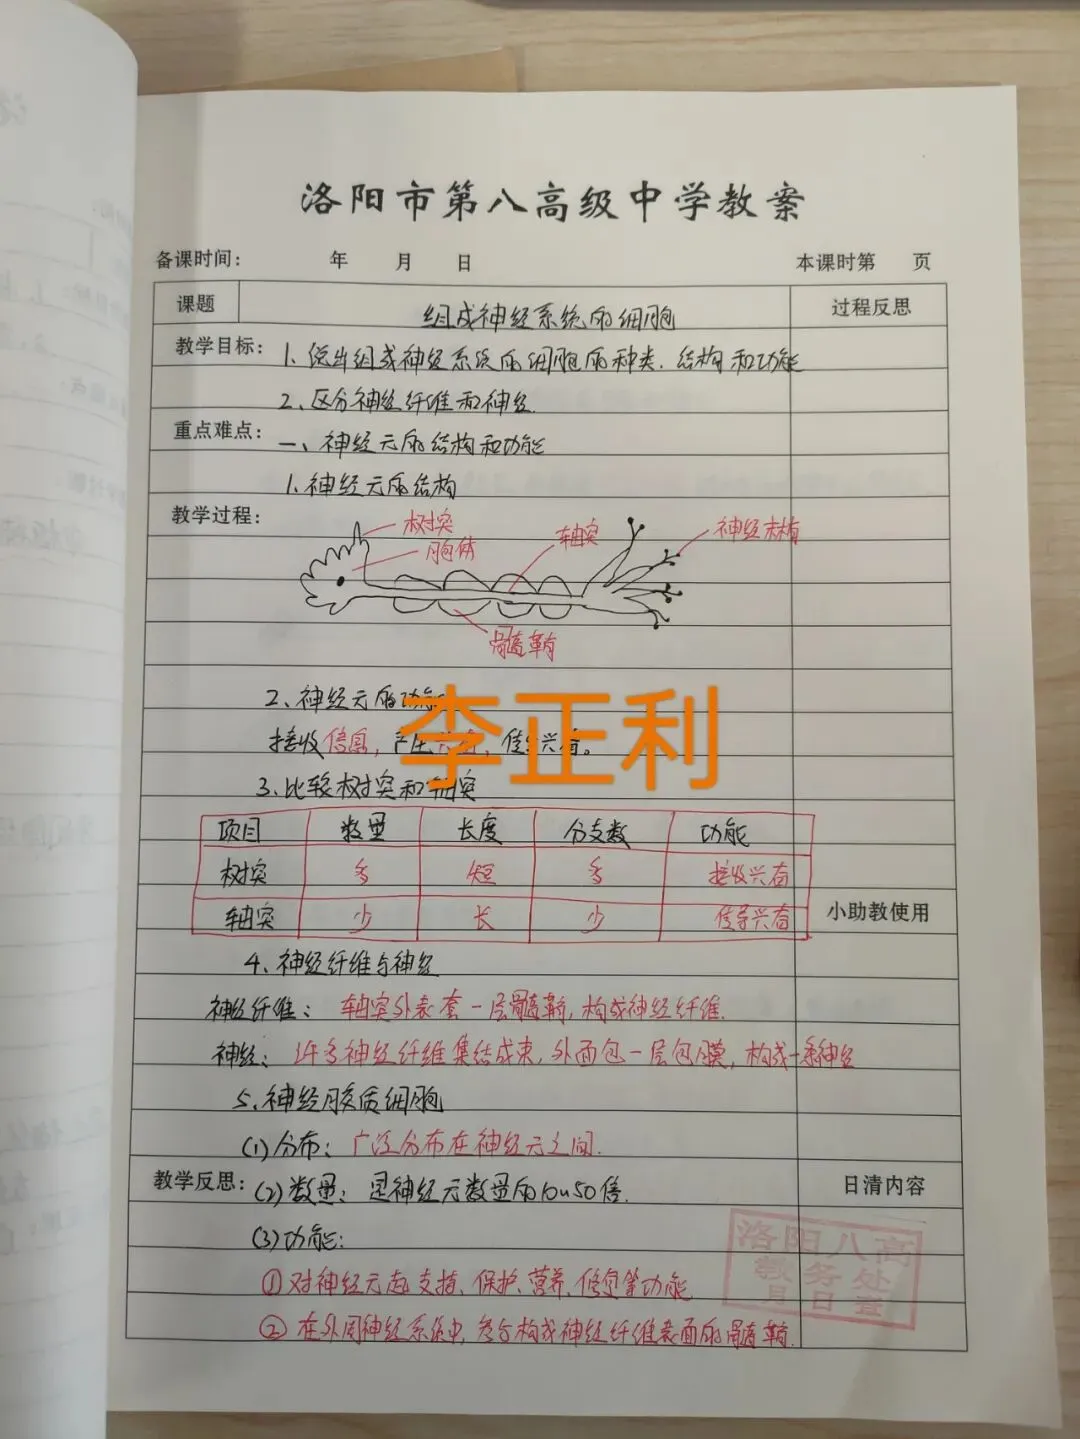 洛阳市第八高级中学教案
备课时间： 年 月 日 本课时第 页
课题 组成神经系统的细胞 过程反思
教学目标： 1、说出组成神经系统的细胞的种类、结构和功能
2、区分神经纤维和神经
重点难点： 一、神经元的结构和功能
1、神经元的结构
教学过程：
树突
胞体
轴突
神经末梢
髓鞘
2、神经元的功能
李正利
接收信息，产生兴奋，传导兴奋。
3、比较树突和轴突
项目 数量 长度 分支数 功能
树突 多 短 多 接收兴奋
轴突 少 长 少 传导兴奋
小助教使用
4、神经纤维与神经
神经纤维：轴突外表套一层髓鞘，构成神经纤维.
神经：许多神经纤维集结成束，外面包一层包膜，构成一条神经
5、神经胶质细胞
(1)分布：广泛分布在神经元之间.
教学反思： (2)数量：是神经元数量的10~50倍. 日清内容
(3)功能：
①对神经元起支持、保护、营养、修复等功能
②在外周神经系统中，参与构成神经纤维表面的髓鞘.
洛阳八高
教务处
月 日查